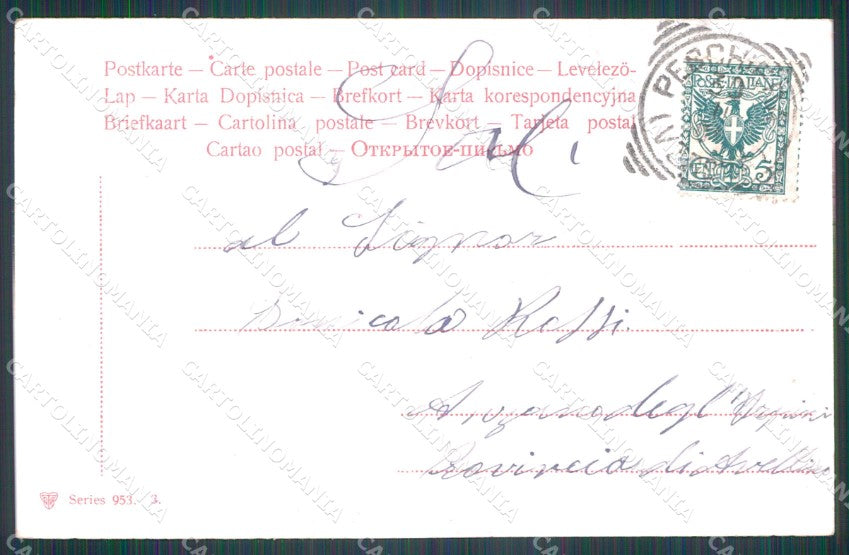 Postkarte — Carte postale — Post card — Dopisnice — Levelező-
Lap — Karta Dopisnica — Brefkort — Karta korespondencyjna
Briefkaart — Cartolina postale — Brevkort — Tarjeta postal
Cartao postal — Открытое-письмо
al Signor
Rossi
Arzano degl'Irpini
di Avellino
Series 953. 3.
5
CARTOLINOMANIA